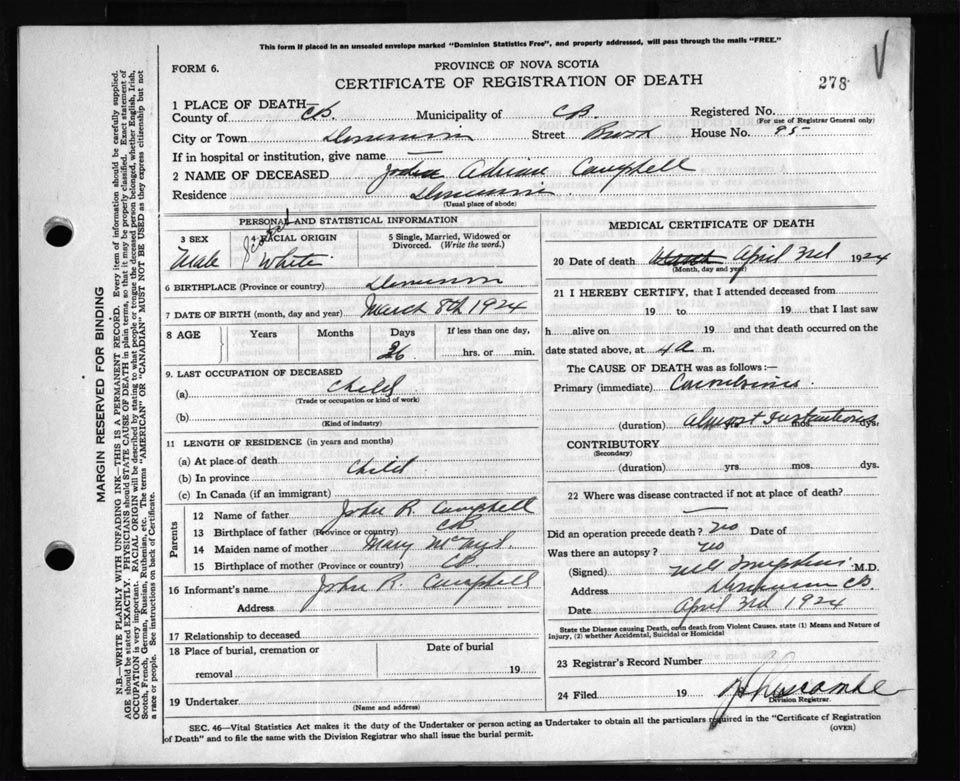 This form if placed in an unsealed envelope marked "Dominion Statistics Free", and properly addressed, will pass through the mails "FREE."
FORM 6.
PROVINCE OF NOVA SCOTIA
CERTIFICATE OF REGISTRATION OF DEATH
278
1 PLACE OF DEATH—
County of CB Municipality of CB Registered No.
(For use of Registrar General only)
City or Town Street House No. 95
If in hospital or institution, give name —
2 NAME OF DECEASED Adrian Campbell
Residence
(Usual place of abode)
PERSONAL AND STATISTICAL INFORMATION
3 SEX 4 RACIAL ORIGIN 5 Single, Married, Widowed or Divorced. (Write the word.)
Male Scotch White
6 BIRTHPLACE (Province or country)
7 DATE OF BIRTH (month, day and year) March 8th 1924
8 AGE Years Months Days If less than one day,
26 hrs. or min.
9. LAST OCCUPATION OF DECEASED
(a) Child
(Trade or occupation or kind of work)
(b)
(Kind of industry)
11 LENGTH OF RESIDENCE (in years and months)
(a) At place of death
(b) In province Child
(c) In Canada (if an immigrant)
Parents
12 Name of father John R. Campbell
13 Birthplace of father (Province or country) CB
14 Maiden name of mother Mary
15 Birthplace of mother (Province or country) CB
16 Informant's name John R. Campbell
Address
17 Relationship to deceased
18 Place of burial, cremation or removal Date of burial
19
19 Undertaker
(Name and address)
MEDICAL CERTIFICATE OF DEATH
20 Date of death April 3rd 1924
(Month, day and year)
21 I HEREBY CERTIFY, that I attended deceased from
19 to 19 that I last saw
h alive on 19 and that death occurred on
date stated above, at 4 a m.
The CAUSE OF DEATH was as follows:—
Primary (immediate)
(duration) almost yrs. mos. dys.
CONTRIBUTORY
(Secondary)
(duration) yrs. mos. dys.
22 Where was disease contracted if not at place of death?
—
Did an operation precede death? no Date of
Was there an autopsy? no
(Signed) M.D.
Address CB
Date April 3rd 1924
State the Disease causing Death, or in death from Violent Causes, state (1) Means and Nature of
Injury, (2) whether Accidental, Suicidal or Homicidal
23 Registrar's Record Number
24 Filed 19
Division Registrar.
SEC. 46—Vital Statistics Act makes it the duty of the Undertaker or person acting as Undertaker to obtain all the particulars required in the "Certificate of Registration
of Death" and to file the same with the Division Registrar who shall issue the burial permit.
(OVER)
MARGIN RESERVED FOR BINDING
N.B.—WRITE PLAINLY WITH UNFADING INK—THIS IS A PERMANENT RECORD. Every item of information should be carefully supplied.
AGE should be stated EXACTLY. PHYSICIANS should STATE CAUSE OF DEATH in plain terms, so that it may be properly classified. Exact statement of
OCCUPATION is very important. RACIAL ORIGIN will be described by stating to what people or tongue the deceased person belonged, whether English, Irish,
Scotch, French, German, Russian, Ruthenian, etc. The terms "AMERICAN" or "CANADIAN" MUST NOT BE USED as they express citizenship but not
a race or people. See instructions on back of Certificate.